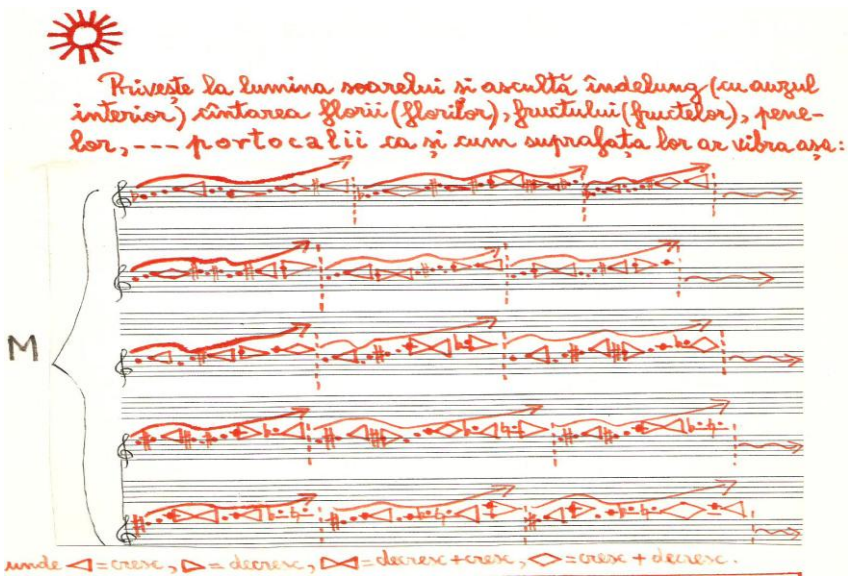 Privește la lumina soarelui și ascultă îndelung (cu auzul
interior) cîntarea florii (florilor), fructului (fructelor), pene-
lor, --- portocalii ca și cum suprafața lor ar vibra așa:
M
unde ◁ = cresc, ▷ = decresc, ▷◁ = decresc + cresc, ◇ = cresc + decresc.